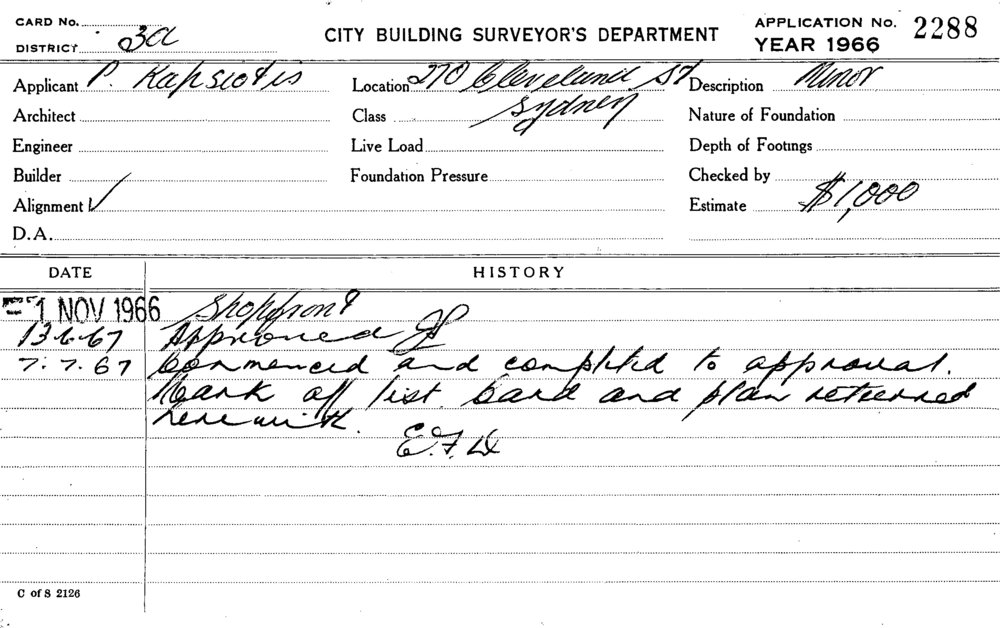 CARD No.
DISTRICT 3a
CITY BUILDING SURVEYOR'S DEPARTMENT
APPLICATION No. 2288
YEAR 1966
Applicant P. Kapsiotis Location 270 Cleveland St Description Minor
Architect Class Sydney Nature of Foundation
Engineer Live Load Depth of Footings
Builder Foundation Pressure Checked by
Alignment ✓ Estimate $1,000
D.A.
DATE HISTORY
-1 NOV 1966 Shopfront
13-6-67 Approved
7.7.67 Commenced and completed to approval.
Mark off list. Card and plan returned
herewith.
E.F.D
C of S 2126